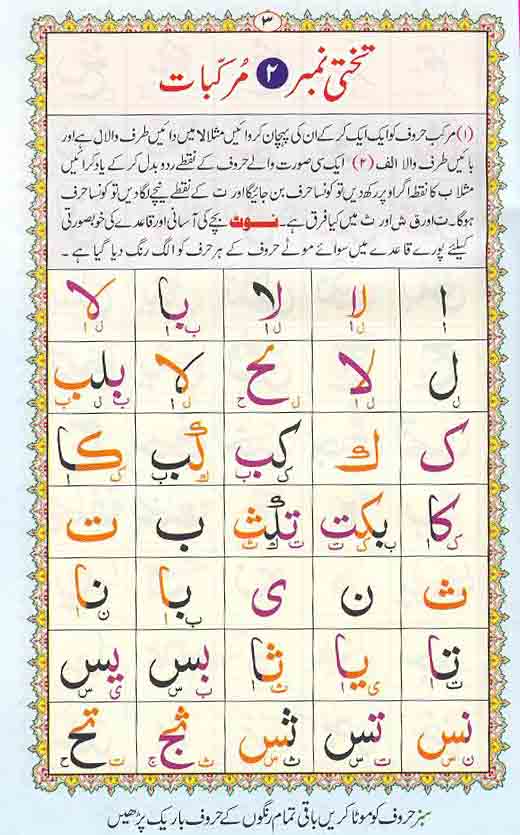 ٣
تختی نمبر ٢ مُرکّبات
(١) مرکب حروف کو ایک ایک کر کے ان کی پہچان کروائیں مثلا لا میں دائیں طرف والا ل ہے اور
بائیں طرف والا الف (٢) ایک سی صورت والے حروف کے نقطے ردو بدل کر کے یاد کرائیں
مثلا ب کا نقطہ اگر اوپر رکھ دیں تو کونسا حرف بن جائیگا اور ت کے نقطے نیچے لگا دیں تو کونسا حرف
ہوگا۔ ت اور ق ش اور ث میں کیا فرق ہے۔ نوٹ بچے کی آسانی اور قاعدے کی خوبصورتی
کیلئے پورے قاعدے میں سوائے موٹے حروف کے ہر حرف کو الگ رنگ دیا گیا ہے۔
ا لا لا با لا
ل لا لح لا بلب
ک ك کب كب كا
کا بکت تكث ب ت
ث ن ی با نا
تا یا ثا بس یس
نس تس ثس ثج تح
سبز حروف کو موٹا کریں باقی تمام رنگوں کے حروف باریک پڑھیں